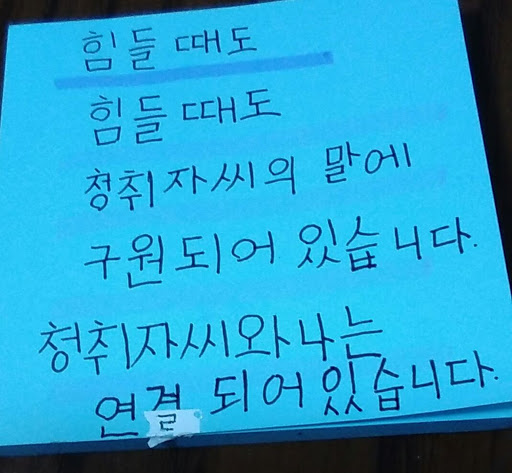 힘들 때도
힘들 때도
청취자씨의 말에
구원되어 있습니다.
청취자씨와 나는
연결 되어있습니다.